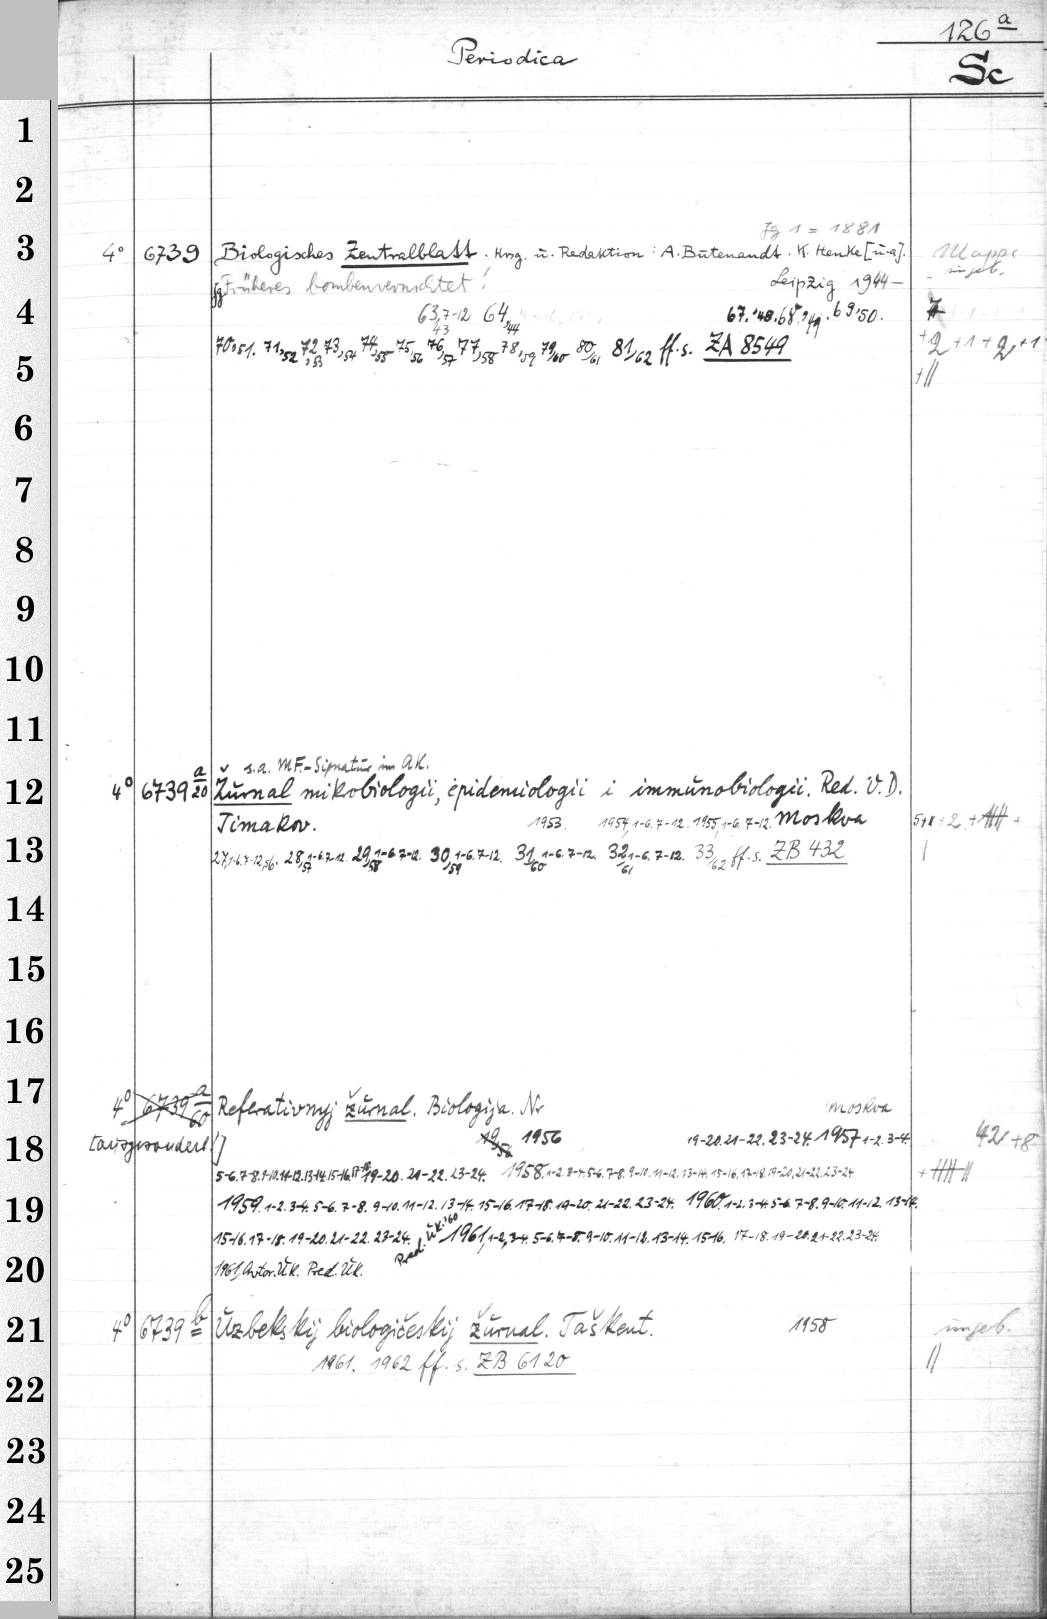 126a
Periodica
Sc
1
2
Jg 1 = 1881
3 4° 6739 Biologisches Zentralblatt. Hrsg. u. Redaktion: A. Butenandt. K. Henke [u.a]. Mappe
Früheres bombenvernichtet! Leipzig 1944– ungeb.
4 63,7-12 43 64,44 67.'48. 68,'49. 69,'50.
70,51. 71,52 72,53 73,54 74,55 75,56 76,57 77,58 78,59 79/60 80/61 81/62 ff. s. ZA 8549 +2+1+2+1
5 +||
6
7
8
9
10
11
s.a. MF-Signatur im AK.
12 4° 6739 a/20 Žurnal mikrobiologii, épidemiologii i immunobiologii. Red. V. D.
Timakov. 1953. 1954,1-6.7-12. 1955,1-6.7-12. Moskva
13 27,1-6.7-12,56. 28,1-6.7-12.57 29,1-6.7-12.58 30,1-6.7-12.59 31,1-6.7-12.60 32,1-6.7-12.61 33/62 ff. s. ZB 432
14
15
16
17 4° 6739 a/60 Referativnyj žurnal. Biologija. Nr Moskva
18 [ausgesondert!] 1956 19-20.21-22.23-24. 1957,1-2.3-4. 42+8
5-6.7-8.9-10.11-12.13-14.15-16.17-18.19-20.21-22.23-24. 1958,1-2.3-4.5-6.7-8.9-10.11-12.13-14.15-16.17-18.19-20.21-22.23-24
19 1959,1-2.3-4.5-6.7-8.9-10.11-12.13-14.15-16.17-18.19-20.21-22.23-24. 1960,1-2.3-4.5-6.7-8.9-10.11-12.13-14.
15-16.17-18.19-20.21-22.23-24. Pred. Uk.'60 1961,1-2,3-4.5-6.7-8.9-10.11-12.13-14.15-16.17-18.19-20.21-22.23-24.
20 1961,Avtor.Uk. Pred. Uk.
21 4° 6739 b Uzbekskij biologičeskij žurnal. Taškent. 1958 ungeb.
1961. 1962 ff. s. ZB 6120 ||
22
23
24
25